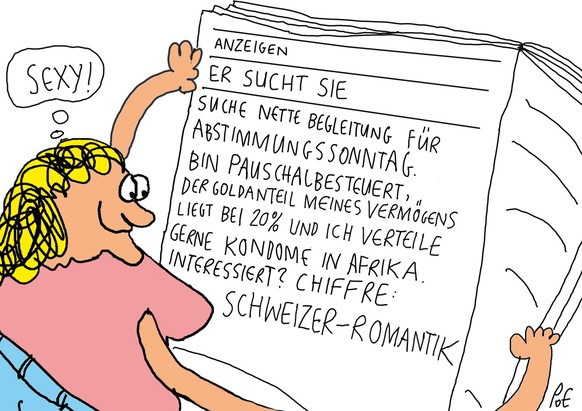 SEXY!
ANZEIGEN
ER SUCHT SIE
SUCHE NETTE BEGLEITUNG FÜR
ABSTIMMUNGSSONNTAG.
BIN PAUSCHALBESTEUERT,
DER GOLDANTEIL MEINES VERMÖGENS
LIEGT BEI 20% UND ICH VERTEILE
GERNE KONDOME IN AFRIKA.
INTERESSIERT? CHIFFRE:
SCHWEIZER-ROMANTIK
PoE